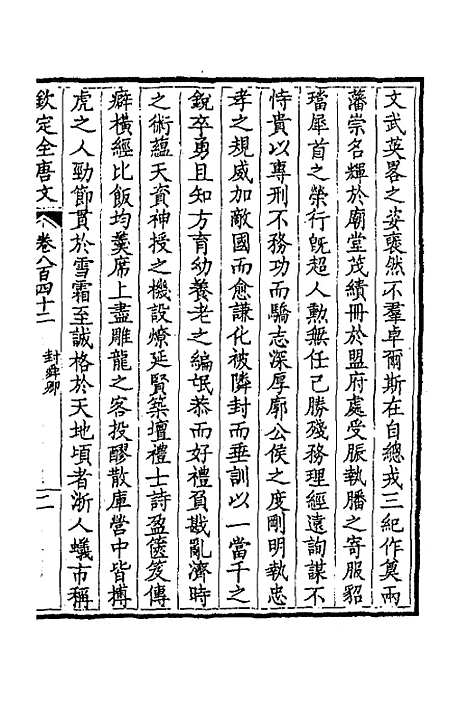 文武英畧之姿裒然不羣卓爾斯在自總戎三紀作奠兩
藩崇名輝於廟堂茂績冊於盟府處受脤執膰之寄服貂
璫犀首之榮行旣超人勲無任己勝殘務理經遠詢謀不
恃貴以專刑不務功而驕志深厚廓公侯之度剛明執忠
孝之規威加敵國而愈謙化被隣封而垂訓以一當千之
銳卒勇且知方育幼養老之編氓恭而好禮負戡亂濟時
之術蘊天資神授之機設燎延賢築壇禮士詩盈篋笈傳
癖橫經比飯均羹席上盡雕龍之客投醪散庫營中皆搏
虎之人勁節貫於雪霜至誠格於天地頃者浙人蟻市稱
欽定全唐文 卷八百四十二 封舜卿 二